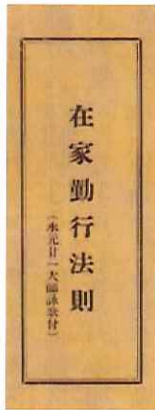 在家勤行法則
（水元廿一大師詠歌付）